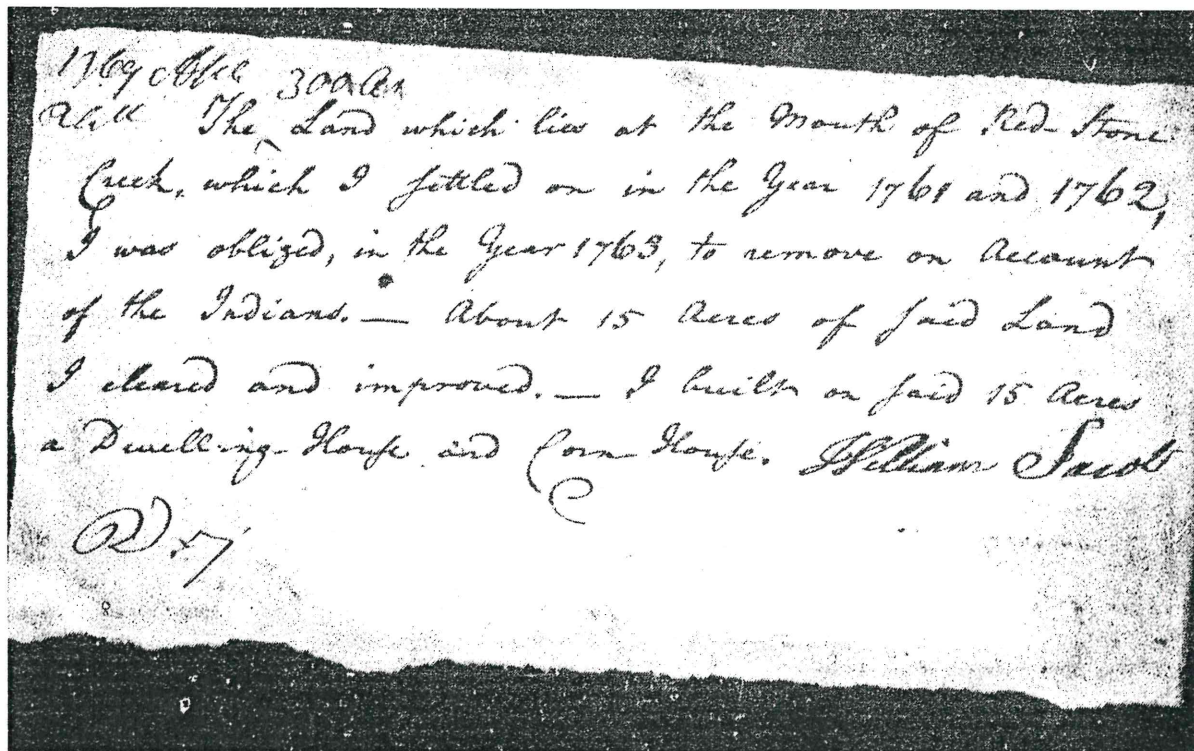 1769 300 Acr
The Land which lies at the Mouth of Red-Stone
Creek, which I settled on in the Year 1761 and 1762,
I was oblized, in the Year 1763, to remove on Account
of the Indians. — About 15 Acres of said Land
I cleared and improved. — I built on said 15 Acres
a Dwelling-House and Corn-House. William Jacob